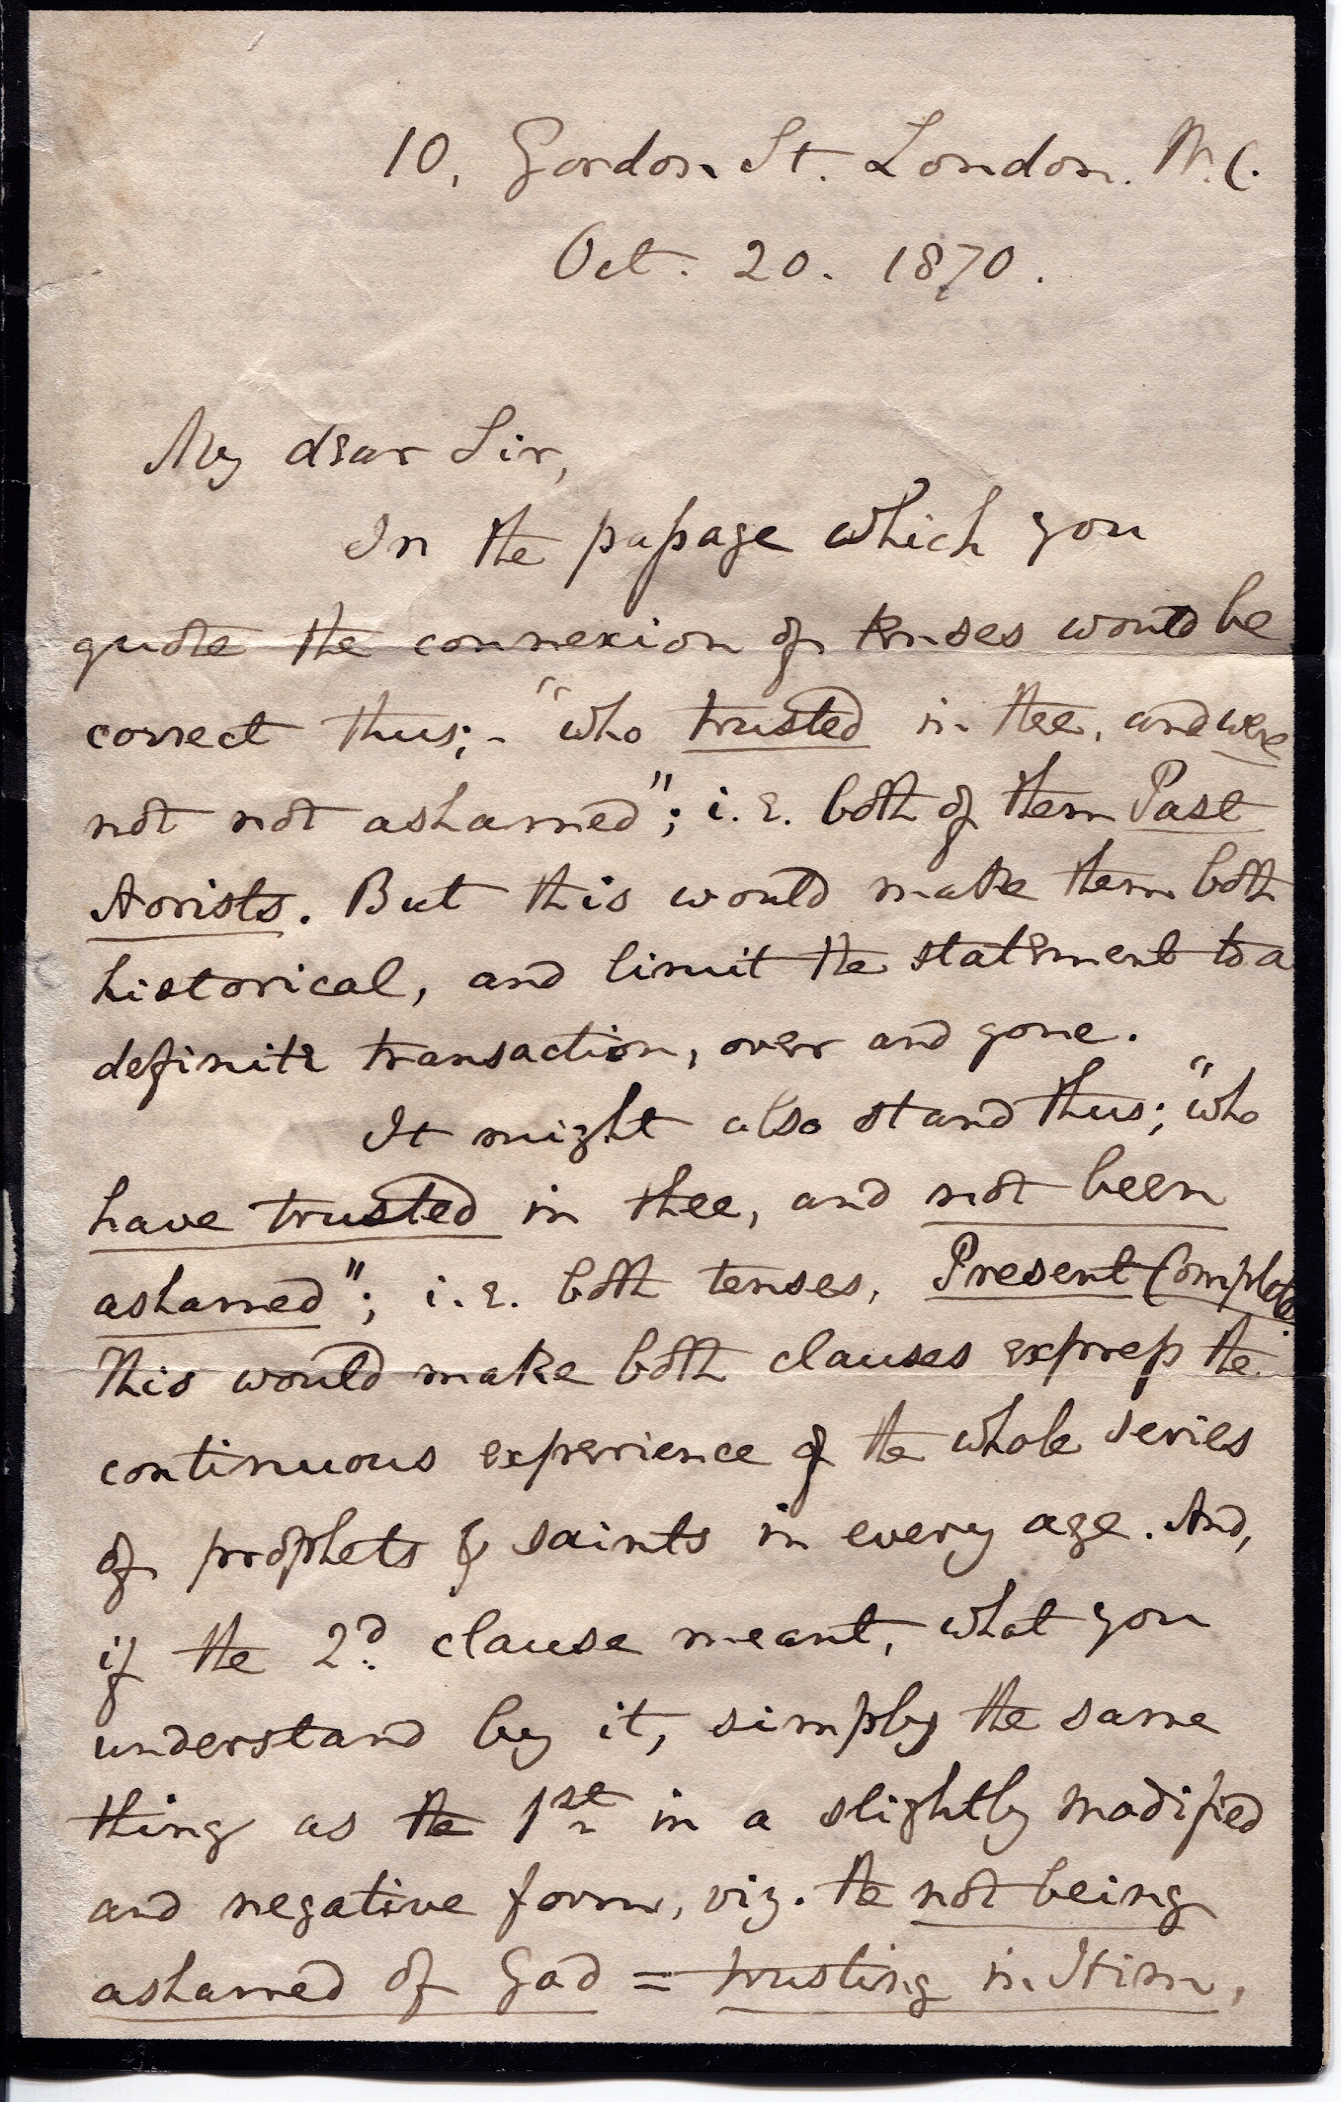 10, Gordon St. London. W.C.
Oct. 20. 1870.
My dear Sir,
In the passage which you
quote the connexion of tenses would be
correct thus; - "who trusted in thee, and were
not not ashamed"; i.e. both of them Past
Aorists. But this would make them both
historical, and limit the statement to a
definite transaction, over and gone.
It might also stand thus; "who
have trusted in thee, and not been
ashamed"; i.e. both tenses, Present Complete.
This would make both clauses express the
continuous experience of the whole series
of prophets & saints in every age. And,
if the 2d. clause meant, what you
understand by it, simply the same
thing as the 1st in a slightly modified
and negative form, viz. the not being
ashamed of God = trusting in Him,